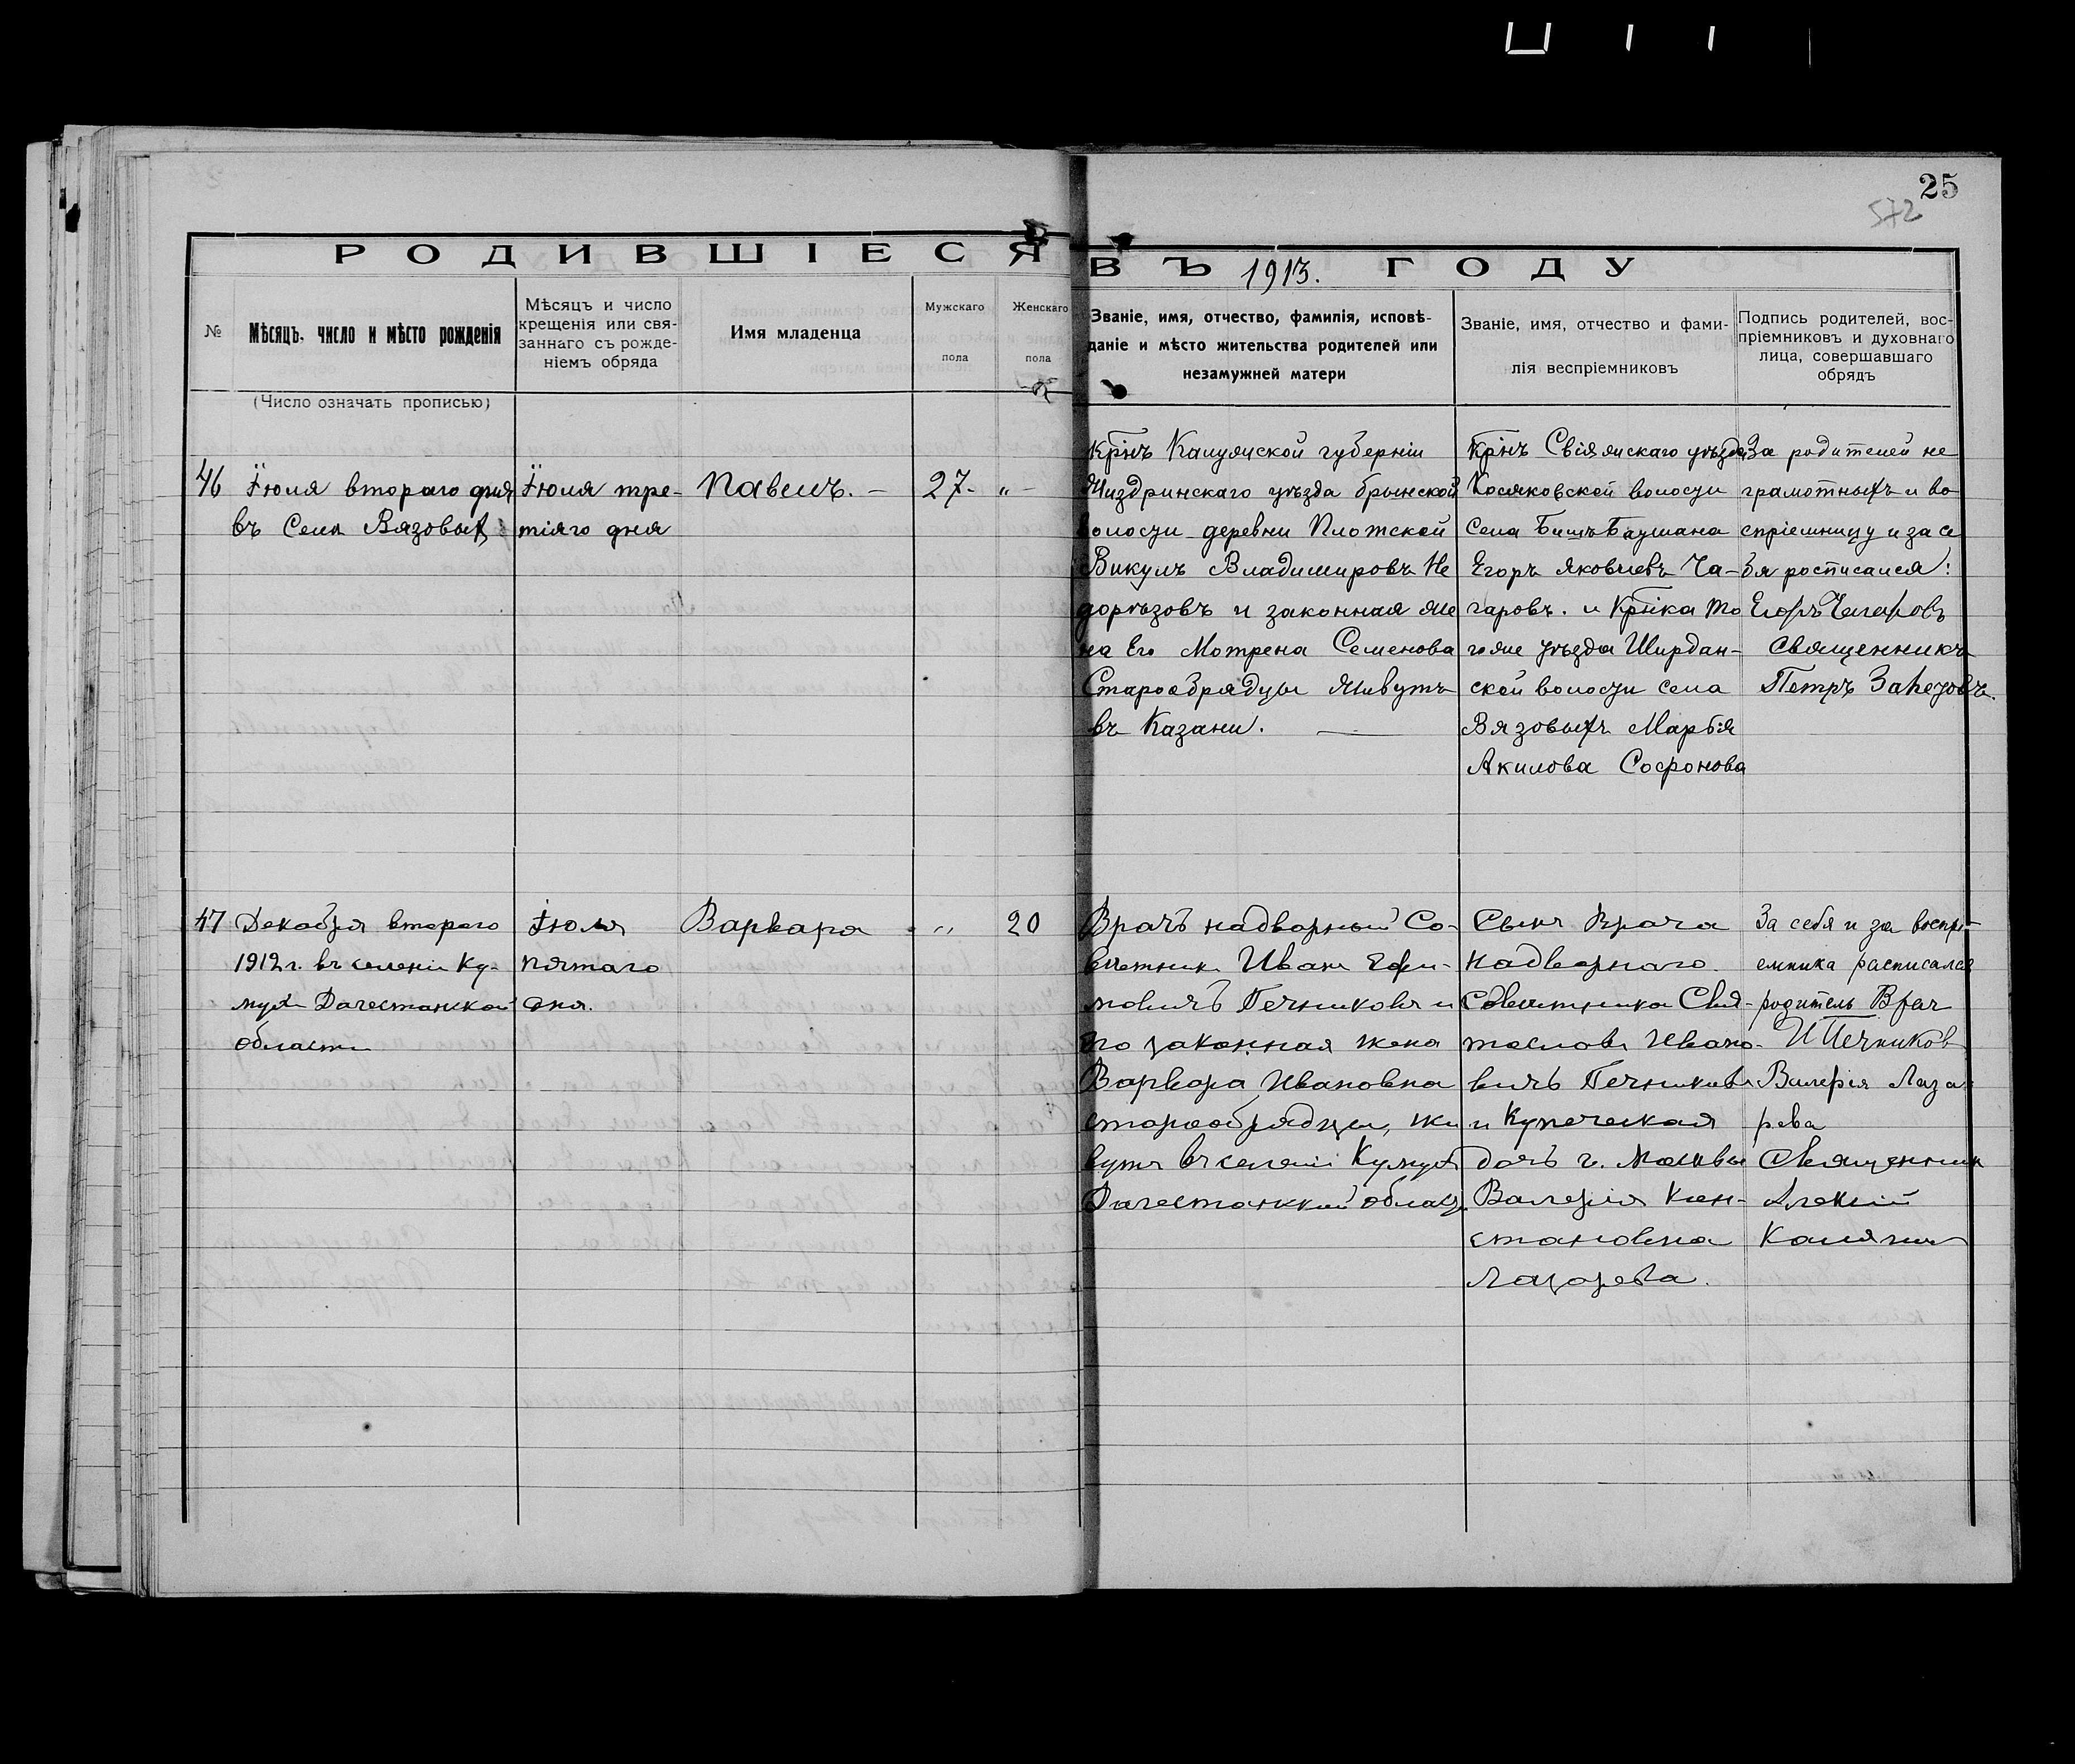 25
572
РОДИВШІЕСЯ ВЪ 1913. ГОДУ
№
Мѣсяцъ, число и мѣсто рожденія
(Число означать прописью)
Мѣсяцъ и число
крещенія или свя-
заннаго съ рожде-
ніемъ обряда
Имя младенца
Мужскаго
пола
Женскаго
пола
Званіе, имя, отчество, фамилія, исповѣ-
даніе и мѣсто жительства родителей или
незамужней матери
Званіе, имя, отчество и фами-
лія веспріемниковъ
Подпись родителей, вос-
пріемниковъ и духовнаго
лица, совершавшаго
обрядъ
46
Іюля второго дня
въ Села Вязовых
Іюля тре-
тіяго дня
Павелъ. —
27-
„ -
Крнъ Калужской губерніи
Жиздринскаго уѣзда брынской
волости деревни Плотской
Викулъ Владимировъ Не
дорѣзовъ и законная же
на Его Мотрена Семенова
Старообрядцы живутъ
въ Казани. —
Крнъ Свіяжскаго уѣзда
Косяковской волости
Села Бишъ Баушана
Егоръ Яковлевъ Ча-
гаровъ. и Крнка то
гоже уѣзда Ширдан-
ской волости села
Вязовыхъ Марѳія
Акилова Софронова
За родителей не
грамотныхъ и во
спріемницу и за се
бя росписался:
Егоръ Чагаровъ
Священникъ
Петръ
47
Декабря второго
1912 г. въ селеніи Ку-
мухъ Дагестанской
области
Іюля
пятаго
дня.
Варвара
„
20
Врачъ надворный Со-
вѣтник Иван Ефи-
мовичъ Печниковъ и
его законная жена
Варвара Ивановна
старообрядцы, жи
вутъ въ селеніи Кумухъ
Дагестанской област.
Сынъ Врача
Надворнаго
Совѣтника Свя-
тославъ Ивано-
вичъ Печниковъ
и Купеческая
дочь г. Москвы
Валерія Кон-
становна
Лазарева.
За себя и за воспрі-
емника расписался
родитель Врач
И Печников
Валерія Лаза-
рева
Священник
Алексій